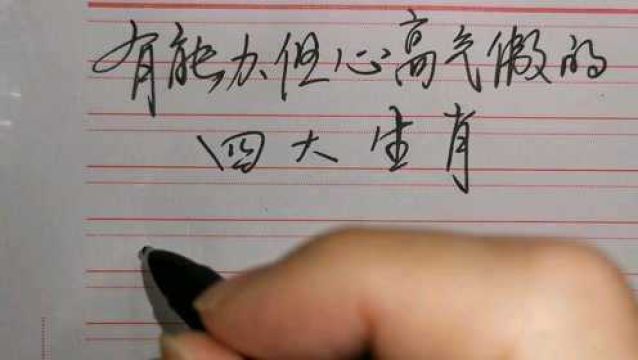 有能力但心高气傲的
四大生肖